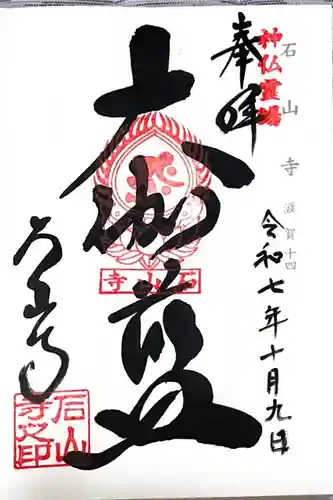 奉拝
神仏霊場
石山寺 滋賀十四
令和七年十月九日
大伽藍
石山寺
石山寺
石山寺之印